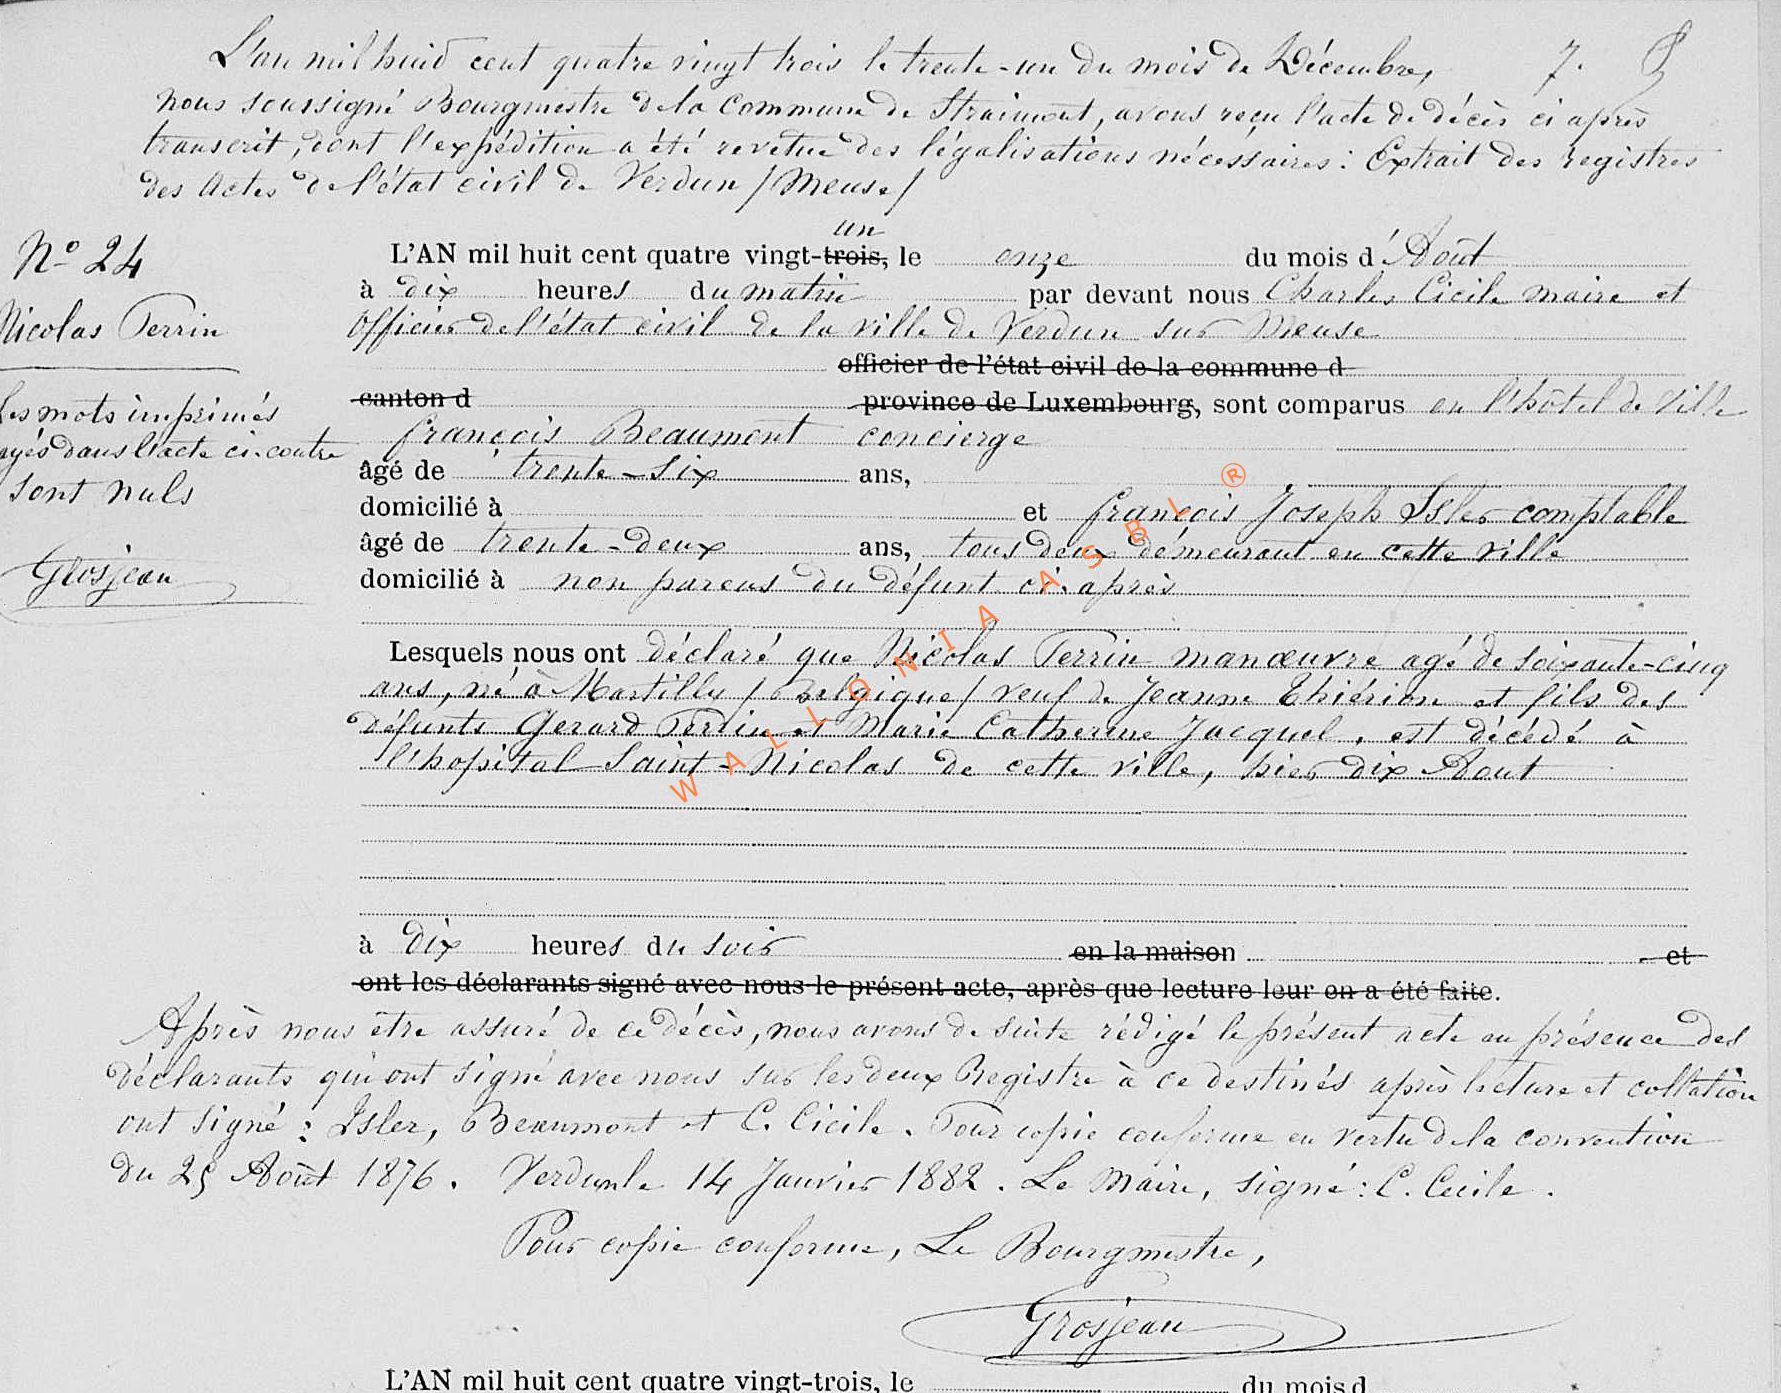 L'an mil huit cent quatre vingt trois le trente-un du mois de Décembre, 7.
nous soussigné Bourgmestre de la Commune de Straimont, avons reçu l'acte de décès ci après
transcrit, dont l'expédition a été revêtue des légalisations nécessaires : Extrait des registres
des Actes de l'état civil de Verdun /Meuse/
un
Nº 24
L'AN mil huit cent quatre vingt-trois, le onze du mois d'Août
à dix heures du matin par devant nous Charles Cicile maire et
Nicolas Terrin
Officier de l'état civil de la ville de Verdun sur Meuse
officier de l'état civil de la commune d
canton d province de Luxembourg, sont comparus en l'hôtel de Ville
Les mots imprimés
françois Beaumont concierge
rayés dans l'acte ci-contre
âgé de trente-six ans,
sont nuls
domicilié à et françois Joseph Isler comptable
âgé de trente-deux ans, tous deux demeurant en cette ville
Grosjean
domicilié à non parens du défunt ci-après
Lesquels nous ont déclaré que Nicolas Terrin manœuvre agé de soixante-cinq
ans, né à Martilly /Belgique/ veuf de Jeanne Thiérion et fils des
défunts Gerard Terrin et Marie Catherine Jacquel, est décédé à
l'hopital Saint-Nicolas de cette ville, hier dix Aout
WALLONIA ASBL ®
à dix heures du soir en la maison et
ont les déclarants signé avec nous le présent acte, après que lecture leur en a été faite.
Après nous être assuré de ce décès, nous avons de suite rédigé le présent acte en présence des
déclarants qui ont signé avec nous sur les deux Registre à ce destinés après lecture et collation
ont signé : Isler, Beaumont et C. Cicile. Pour copie conforme en vertu de la convention
du 25 Août 1876. Verdun le 14 Janvier 1882. Le Maire, signé : C. Cecile.
Pour copie conforme, Le Bourgmestre,
Grosjean
L'AN mil huit cent quatre vingt-trois, le du mois d